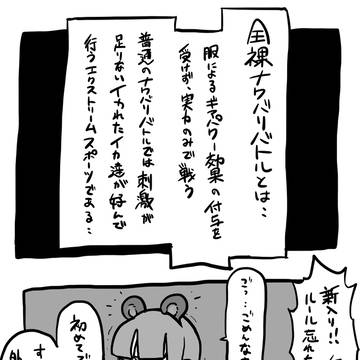 全裸ナワバリバトルとは…
服によるギアパワー効果の付与を
受けず、実力のみで戦う
普通のナワバリバトルでは刺激が
足りないイカれたイカ達が好んで
行うエクストリームスポーツである…
新入り!!
ルール忘れ
ごっ…ごめんな
初めてで
す